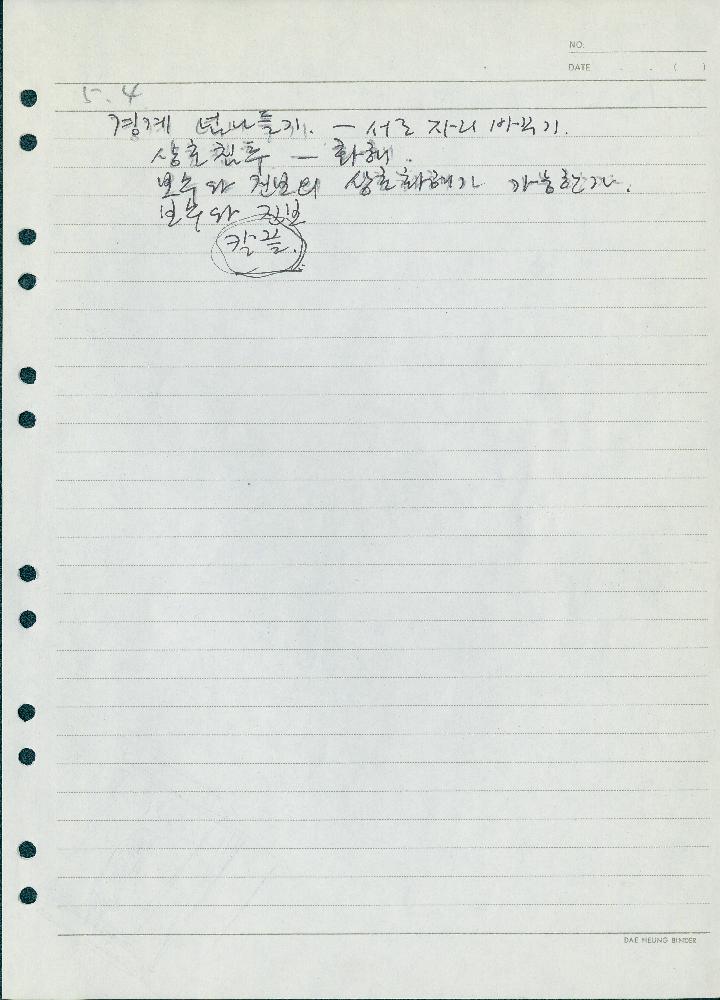 NO.
DATE . . ( )
5. 4
경계 넘나들기. — 서로 자리 바꾸기.
상호침투 — 화해.
보수와 진보의 상호화해가 가능한가.
보수와 진보
칼끝.
DAE HEUNG BINDER